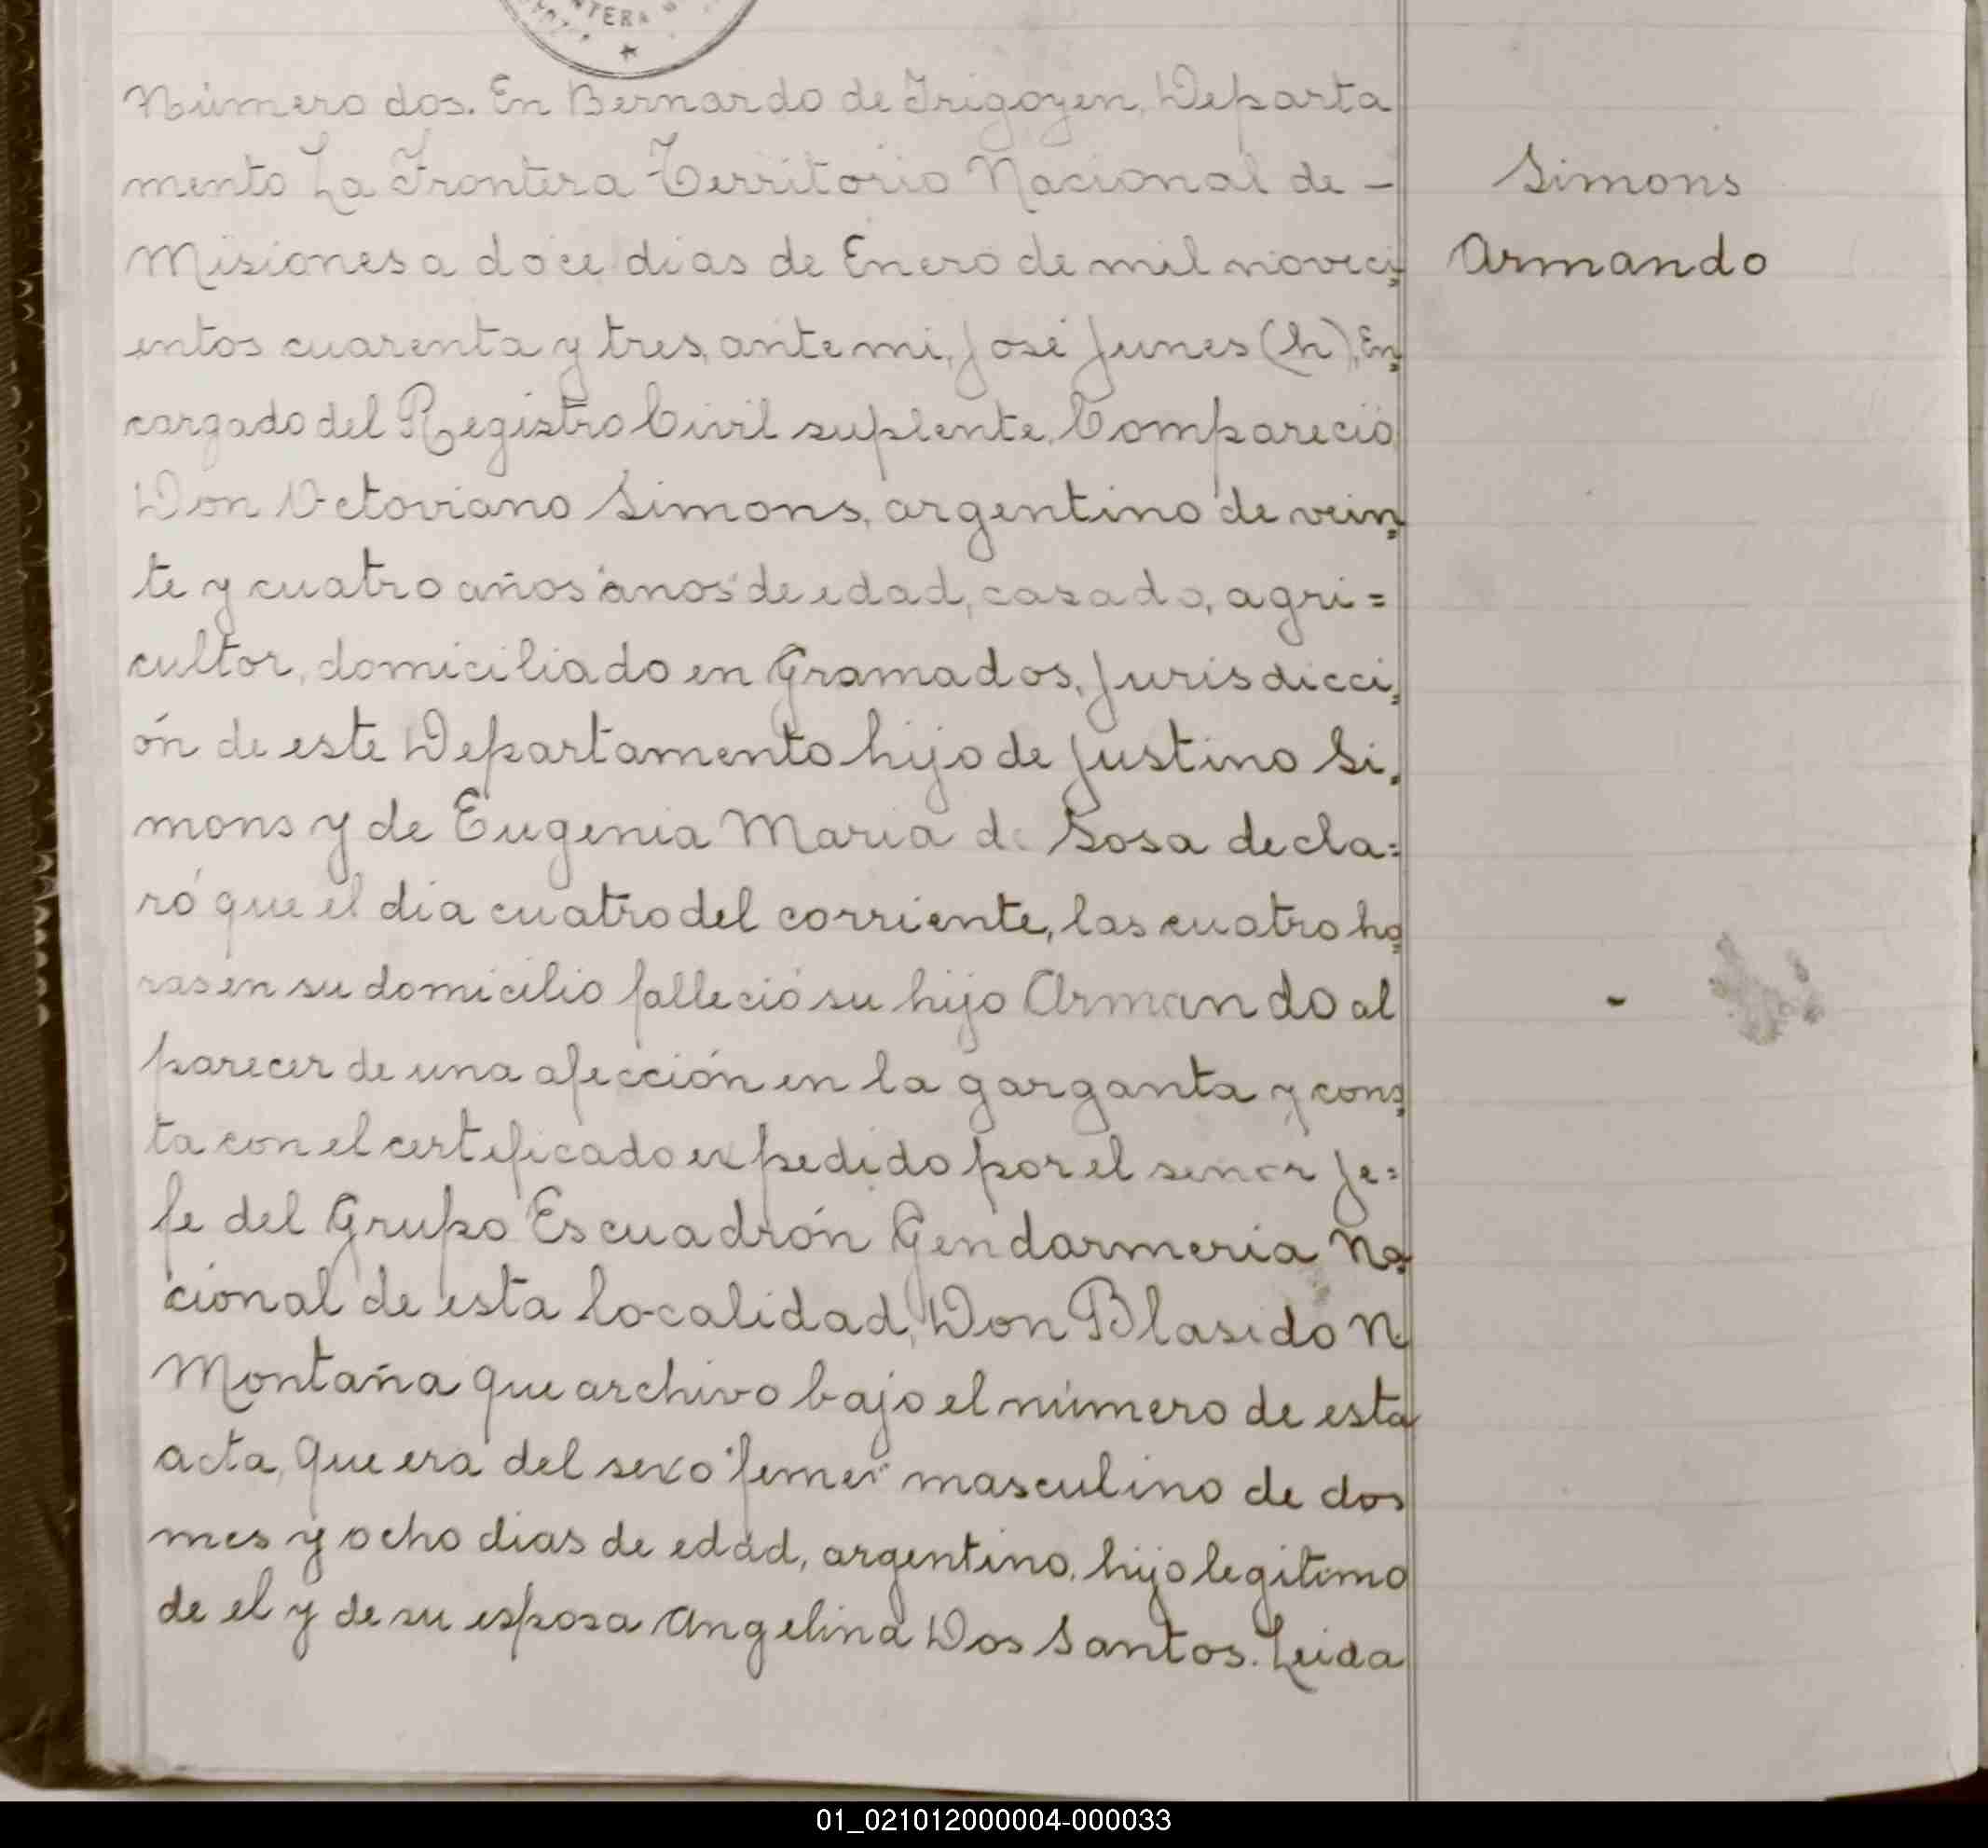 NTERA
Número dos. En Bernardo de Irigoyen, Departa
mento La Frontera Territorio Nacional de –
Misiones a doce dias de Enero de mil noveci=
entos cuarenta y tres, ante mi, José Junes (h), En=
cargado del Registro Civil suplente, Compareció
Don Octoviano Simons, argentino de vein=
te y cuatro años "anos" de edad, casado, agri=
cultor, domiciliado en Gramados, Jurisdicci=
ón de este Departamento hijo de Justino Si=
mons y de Eugenia Maria de Sosa decla=
ró que el dia cuatro del corriente, las cuatro ho=
ras en su domicilio falleció su hijo Armando al
parecer de una afección en la garganta y cons=
ta con el certificado expedido por el senor Je=
fe del Grupo Escuadrón Gendarmeria Na=
cional de esta localidad, Don Blasido N.
Montaña que archivo bajo el número de esta
acta, que era del sexo "femei" masculino de dos
mes y ocho dias de edad, argentino, hijo legitimo
de el y de su esposa Angelina Dos Santos. Leida
Simons
Armando
01_021012000004-000033